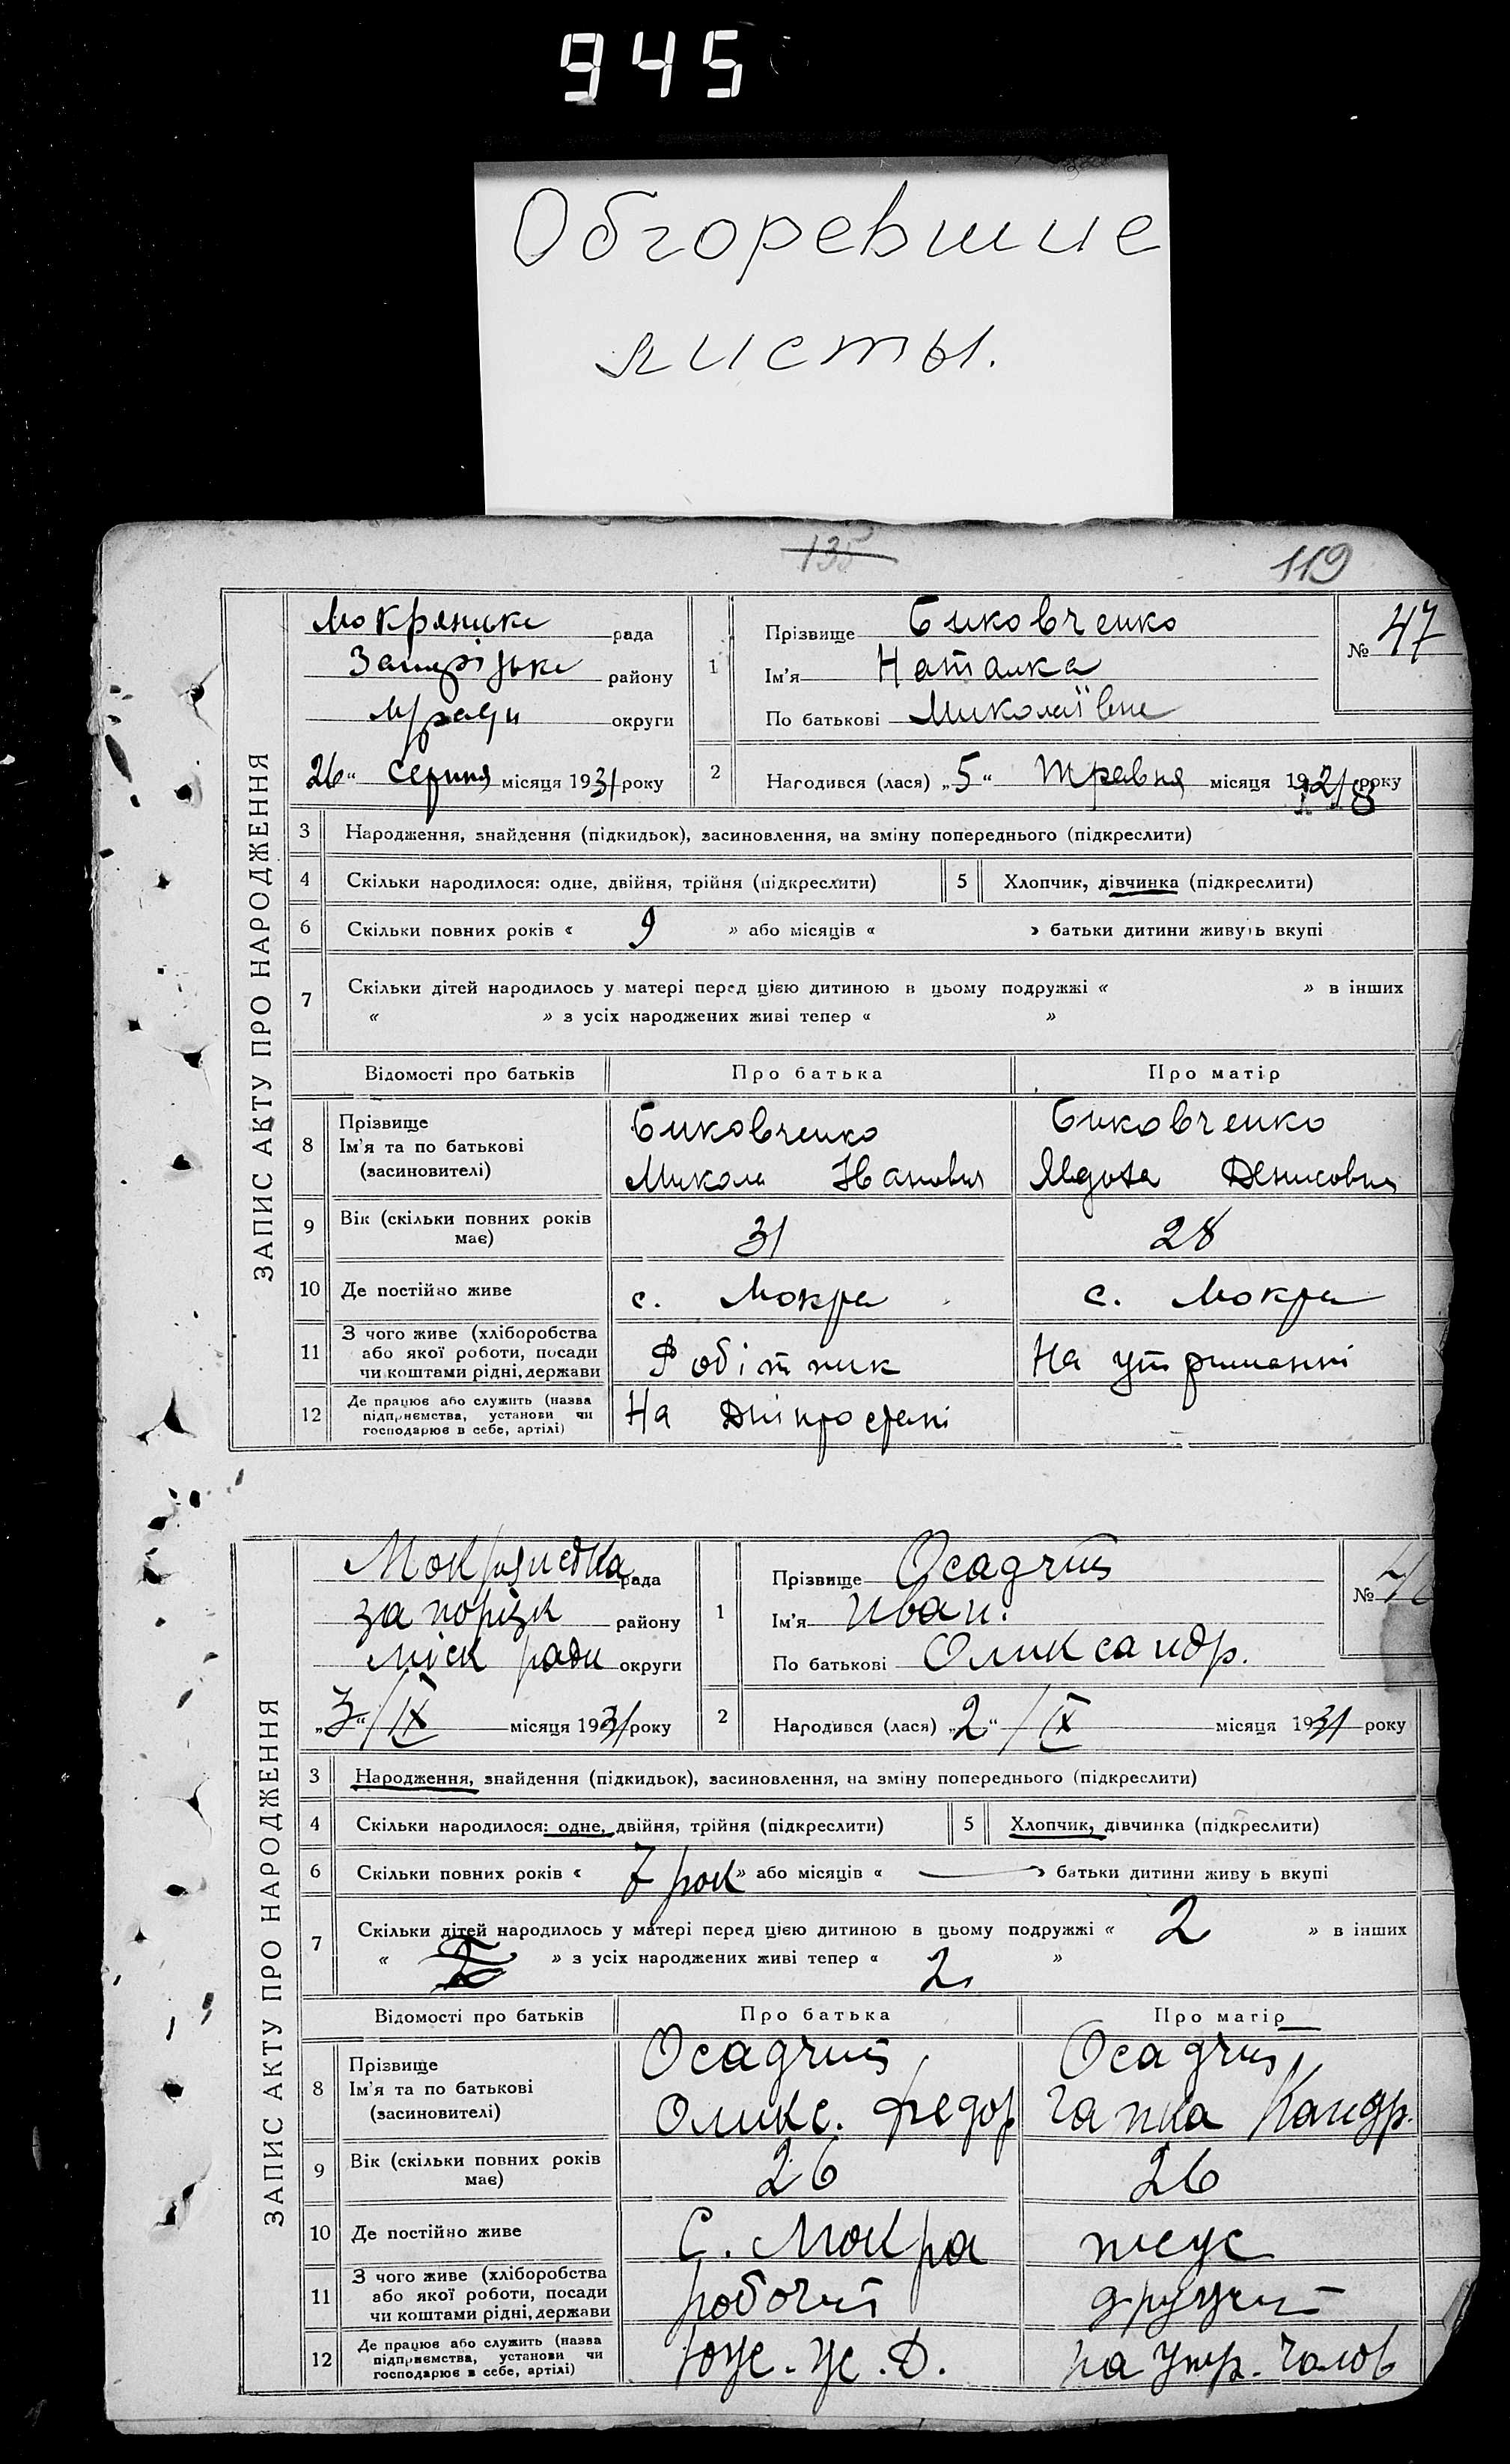 945
Обгоревшие
листы.
135
119
ЗАПИС АКТУ ПРО НАРОДЖЕННЯ
Мокрянська рада
Запорізька району
м/ради округи
26 " серпня місяця 1931 року
1
Прізвище Биковченко
Ім'я Наталка
По батькові Миколаївна
№ 47
2
Нагодився (лася) „5" травня місяця 19 року
3 Народження, знайдення (підкидьок), засиновлення, на зміну попереднього (підкреслити)
4 Скільки народилося: одне, двійня, трійня (підкреслити)
5 Хлопчик, дівчинка (підкреслити)
6 Скільки повних років « 9 » або місяців « » батьки дитини живуть вкупі
7 Скільки дітей народилось у матері перед цією дитиною в цьому подружжі « » в інших
« » з усіх народжених живі тепер « »
Відомості про батьків Про батька Про матір
8 Прізвище
Ім'я та по батькові
(засиновителі)
Биковченко
Микола Іванович
Биковченко
Явдоха Денисовна
9 Вік (скільки повних років
має)
31 28
10 Де постійно живе с. Мокра с. Мокра
11 З чого живе (хліборобства
або якої роботи, посади
чи коштами рідні, держави
Робітник На утриманні
12 Де працює або служить (назва
підприємства, установи чи
господарює в себе, артілі)
На Дніпро
ЗАПИС АКТУ ПРО НАРОДЖЕННЯ
рада
запорізк району
міск ради округи
„3"/IX місяця 1931 року
1
Прізвище Осадчий
Ім'я Иван.
По батькові Олександр.
№
2
Народився (лася) „2"/IX місяця 1931 року
3 Народження, знайдення (підкидьок), засиновлення, на зміну попереднього (підкреслити)
4 Скільки народилося: одне, двійня, трійня (підкреслити)
5 Хлопчик, дівчинка (підкреслити)
6 Скільки повних років « 7 рок » або місяців « — » батьки дитини живу ь вкупі
7 Скільки дітей народилось у матері перед цією дитиною в цьому подружжі « 2 » в інших
« » з усіх народжених живі тепер « 2 »
Відомості про батьків Про батька Про матір
8 Прізвище
Ім'я та по батькові
(засиновителі)
Осадчий
Олекс. Федор
Осадчий
Гапка Кандр.
9 Вік (скільки повних років
має)
26 26
10 Де постійно живе С. Мокра
11 З чого живе (хліборобства
або якої роботи, посади
чи коштами рідні, держави
робочий
12 Де працює або служить (назва
підприємства, установи чи
господарює в себе, артілі)
на утр. Чалов